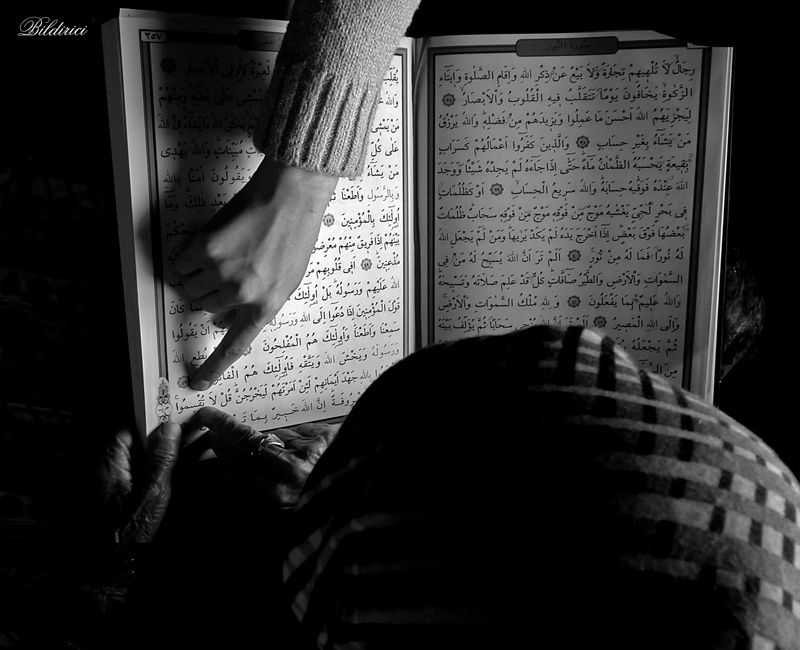 Bildirici
سُورَةُ النُّورِ
رِجَالٌ لَا تُلْهِيهِمْ تِجَارَةٌ وَلَا بَيْعٌ عَنْ ذِكْرِ اللهِ وَاِقَامِ الصَّلٰوةِ وَاِيتَاءِ
الزَّكٰوةِ يَخَافُونَ يَوْماً تَتَقَلَّبُ فِيهِ الْقُلُوبُ وَالْاَبْصَارُ ٣٧
لِيَجْزِيَهُمُ اللهُ اَحْسَنَ مَا عَمِلُوا وَيَزِيدَهُمْ مِنْ فَضْلِهِ وَاللهُ يَرْزُقُ
مَنْ يَشَاءُ بِغَيْرِ حِسَابٍ ٣٨ وَالَّذِينَ كَفَرُوا اَعْمَالُهُمْ كَسَرَابٍ
بِقِيعَةٍ يَحْسَبُهُ الظَّمْاٰنُ مَاءً حَتّٰى اِذَا جَاءَهُ لَمْ يَجِدْهُ شَيْئاً وَوَجَدَ
اللهَ عِنْدَهُ فَوَفّٰيهُ حِسَابَهُ وَاللهُ سَرِيعُ الْحِسَابِ ٣٩ اَوْ كَظُلُمَاتٍ
فِى بَحْرٍ لُجِّىٍّ يَغْشٰيهُ مَوْجٌ مِنْ فَوْقِهِ مَوْجٌ مِنْ فَوْقِهِ سَحَابٌ ظُلُمَاتٌ
بَعْضُهَا فَوْقَ بَعْضٍ اِذَا اَخْرَجَ يَدَهُ لَمْ يَكَدْ يَرٰيهَا وَمَنْ لَمْ يَجْعَلِ اللهُ
لَهُ نُوراً فَمَا لَهُ مِنْ نُورٍ ٤٠ اَلَمْ تَرَ اَنَّ اللهَ يُسَبِّحُ لَهُ مَنْ فِى
السَّمٰوَاتِ وَالْاَرْضِ وَالطَّيْرُ صَافَّاتٍ كُلٌّ قَدْ عَلِمَ صَلَاتَهُ وَتَسْبِيحَهُ
وَاللهُ عَلِيمٌ بِمَا يَفْعَلُونَ ٤١ وَلِلّٰهِ مُلْكُ السَّمٰوَاتِ وَالْاَرْضِ
وَاِلَى اللهِ الْمَصِيرُ ٤٢ سَحَاباً ثُمَّ يُؤَلِّفُ بَيْنَهُ
ثُمَّ يَجْعَلُهُ
٣٥٧
يُقَلِّبُ لَعِبْرَةً لِاُولِى الْاَبْصَارِ
وَاللهُ مَنْ يَمْشِى عَلٰى بَطْنِهِ وَمِنْهُمْ
مَنْ يَمْشِى يَخْلُقُ اللهُ مَا يَشَاءُ اِنَّ اللهَ
عَلٰى كُلِّ مُبَيِّنَاتٍ وَاللهُ يَهْدِى
مَنْ يَشَاءُ وَيَقُولُونَ اٰمَنَّا بِاللهِ
وَبِالرَّسُولِ وَاَطَعْنَا بَعْدِ ذٰلِكَ وَمَا
اُولٰئِكَ بِالْمُؤْمِنِينَ ٤٧ لِيَحْكُمَ
بَيْنَهُمْ اِذَا فَرِيقٌ مِنْهُمْ مُعْرِضُونَ
مُذْعِنِينَ ٤٩ اَفِى قُلُوبِهِمْ مَرَضٌ
اللهُ عَلَيْهِمْ وَرَسُولُهُ بَلْ اُولٰئِكَ كَانَ
قَوْلَ الْمُؤْمِنِينَ اِذَا دُعُوا اِلَى اللهِ وَرَسُولِهِ اَنْ يَقُولُوا
سَمِعْنَا وَاَطَعْنَا وَاُولٰئِكَ هُمُ الْمُفْلِحُونَ يُطِعِ اللهَ
وَرَسُولَهُ وَيَخْشَ اللهَ وَيَتَّقْهِ فَاُولٰئِكَ هُمُ الْفَائِزُونَ
بِاللهِ جَهْدَ اَيْمَانِهِمْ لَئِنْ اَمَرْتَهُمْ لَيَخْرُجُنَّ قُلْ لَا تُقْسِمُوا
مَعْرُوفَةٌ اِنَّ اللهَ خَبِيرٌ بِمَا